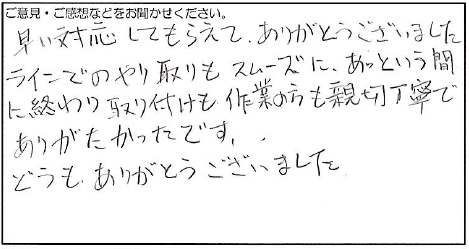 ご意見・ご感想などをお聞かせください。
早い対応してもらえて、ありがとうございました
ラインでのやり取りもスムーズに、あっという間
に終わり取り付けも作業の方も親切丁寧で
ありがたかったです。
どうも、ありがとうございました